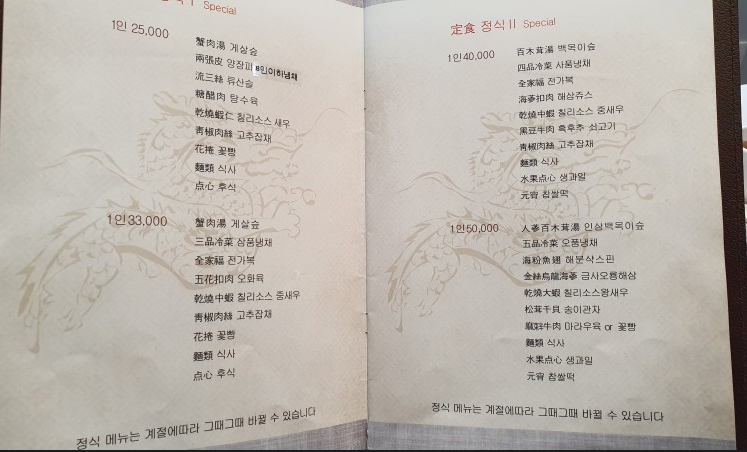 정식 I Special
1인 25,000
蟹肉湯 게살슾
兩張皮 양장피 8인이하냉채
流三絲 류산슬
糖醋肉 탕수육
乾燒蝦仁 칠리소스 새우
靑椒肉絲 고추잡채
花捲 꽃빵
麵類 식사
点心 후식
1인33,000
蟹肉湯 게살슾
三品冷菜 삼품냉채
全家福 전가복
五花扣肉 오화육
乾燒中蝦 칠리소스 중새우
靑椒肉絲 고추잡채
花捲 꽃빵
麵類 식사
点心 후식
정식 메뉴는 계절에따라 그때그때 바뀔 수 있습니다
定食 정식 II Special
1인40,000
百木茸湯 백목이슾
四品冷菜 사품냉채
全家福 전가복
海蔘扣肉 해삼쥬스
乾燒中蝦 칠리소스 중새우
黑豆牛肉 흑후추 쇠고기
靑椒肉絲 고추잡채
麵類 식사
水果点心 생과일
元宵 찹쌀떡
1인50,000
人蔘百木茸湯 인삼백목이슾
五品冷菜 오품냉채
海粉魚翅 해분샥스핀
金絲烏龍海蔘 금사오룡해삼
乾燒大蝦 칠리소스왕새우
松茸干貝 송이관자
麻辣牛肉 마라우육 or 꽃빵
麵類 식사
水果点心 생과일
元宵 찹쌀떡
정식 메뉴는 계절에따라 그때그때 바뀔 수 있습니다